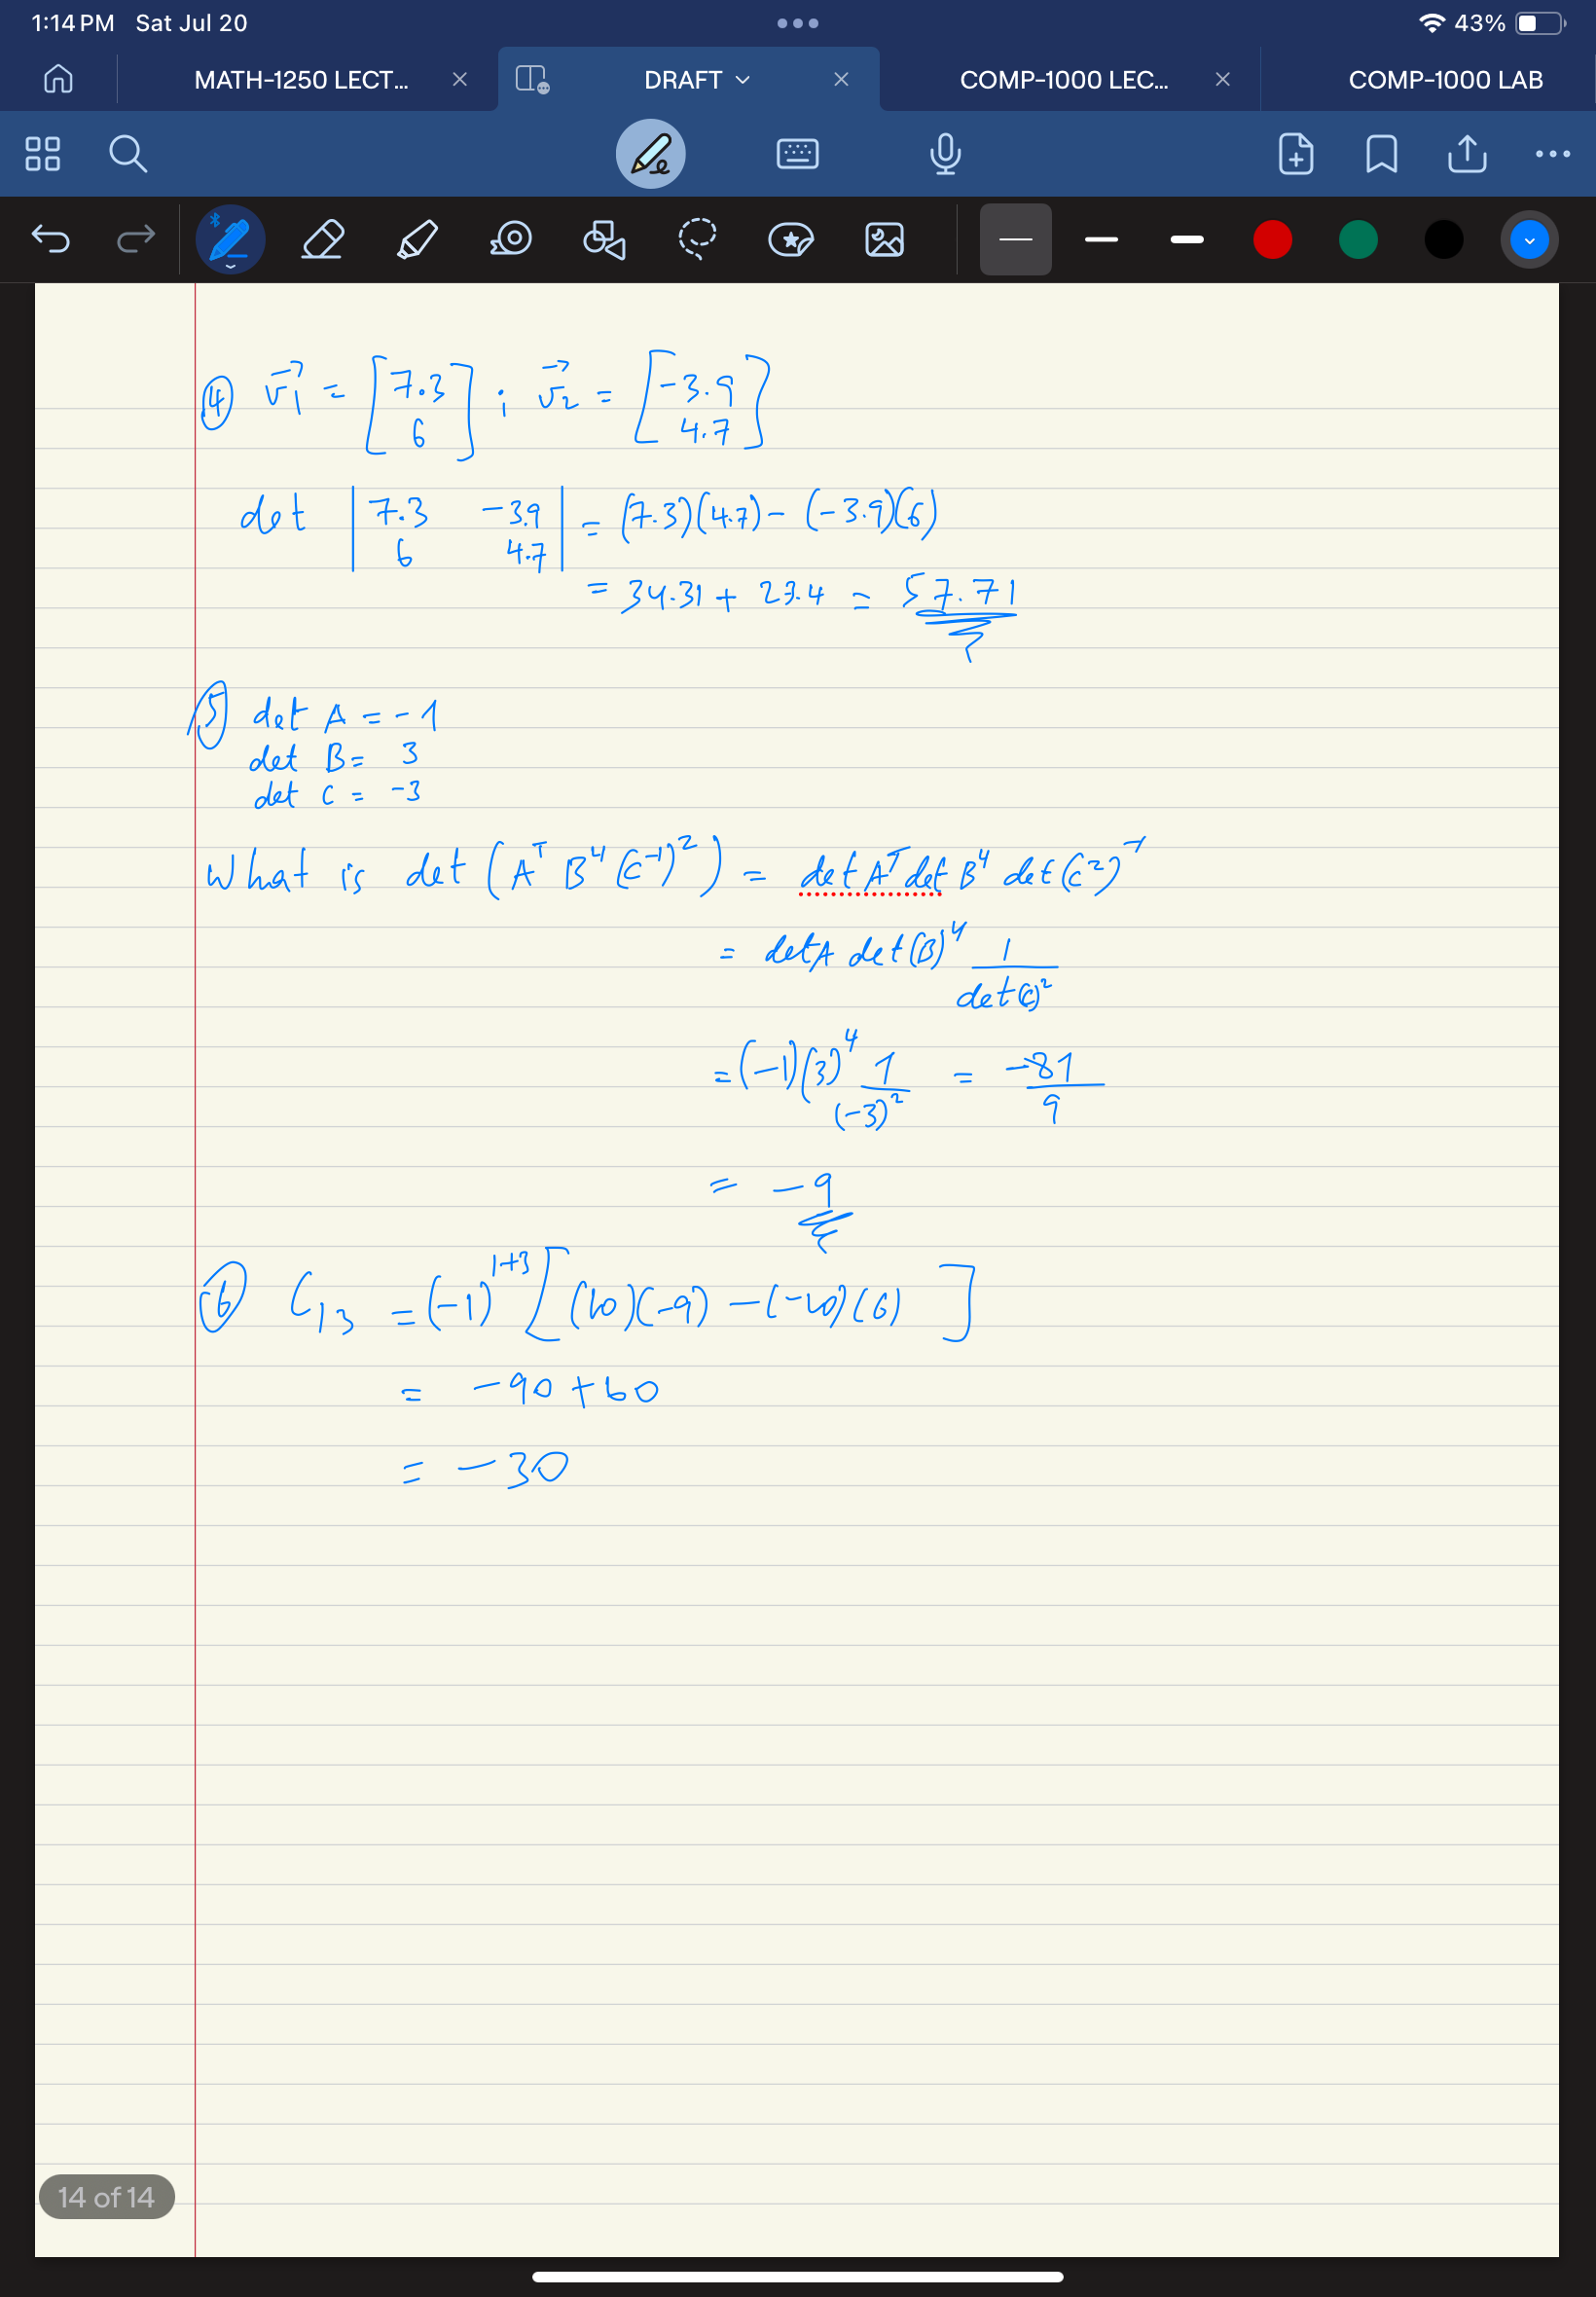 1:14 PM Sat Jul 20 43%
MATH-1250 LECT... DRAFT COMP-1000 LEC... COMP-1000 LAB
④ v₁⃗ = [7.3 6] ; v₂⃗ = [-3.9 4.7]
det |7.3 -3.9| = (7.3)(4.7) - (-3.9)(6)
6 4.7
= 34.31 + 23.4 = 57.71
⑤ det A = -1
det B = 3
det C = -3
What is det (Aᵀ B⁴ (C⁻¹)²) = det Aᵀ det B⁴ det (C²)⁻¹
= det A det (B)⁴ 1/det(C)²
= (-1)(3)⁴ 1/(-3)² = -81/9
= -9
⑥ C₁₃ = (-1)¹⁺³ [(10)(-9) - (-10)(6)]
= -90 + 60
= -30
14 of 14